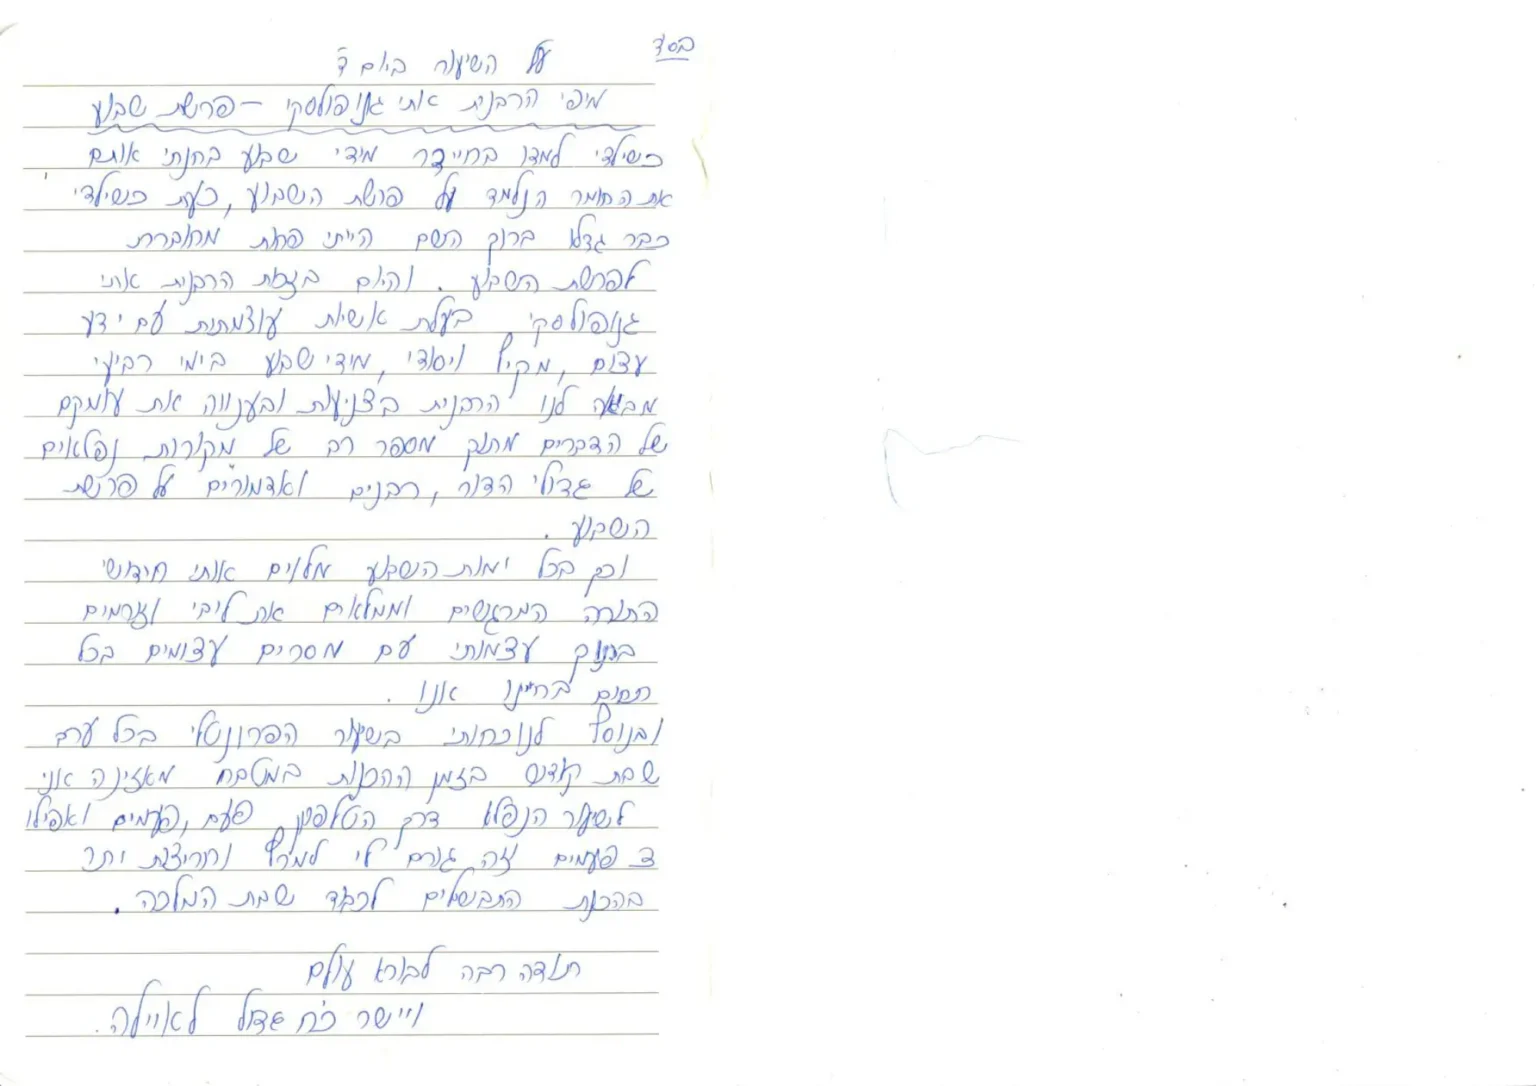 בס"ד
על השיעור ביום ד'
מיפי הרבנית אתי גנופולסקי – פרשת שבוע
כשילדי למדו בחיידר מידי שבוע בחנתי אותם
את החומר הנלמד על פרשת השבוע, כעת כשילדי
כבר גדלו ברוך השם הייתי פחות מחוברת
לפרשת השבוע. והיום בזכות הרבנית אתי
גנופולסקי בעלת אישיות עוצמתית עם ידע
עצום, מקיף ויסודי, מידי שבוע בימי רביעי
מביאה לנו הרבנית בצניעות ובענווה את עומקם
של הדברים מתוך מספר רב של מקורות נפלאים
של גדולי הדור, רבנים ואדמורים על פרשת
השבוע.
וכך בכל ימות השבוע מלווים אותי חידושי
התורה המרגשים וממלאים את ליבי וזורמים
בתוך עצמותי עם מסרים עצומים בכל
תחום בחיינו אנו.
ובנוסף לנוכחותי בשיעור הפרונטלי בכל ערב
שבת קודש בזמן ההכנות במטבח מאזינה אני
לשיעור הנפלא דרך הטלפון פעם, פעמים ואפילו
3 פעמים וזה גורם לי למרץ וחריצות יתר
בהכנת התבשילים לכבוד שבת המלכה.
תודה רבה לבורא עולם
ויישר כח גדול לאיילה.